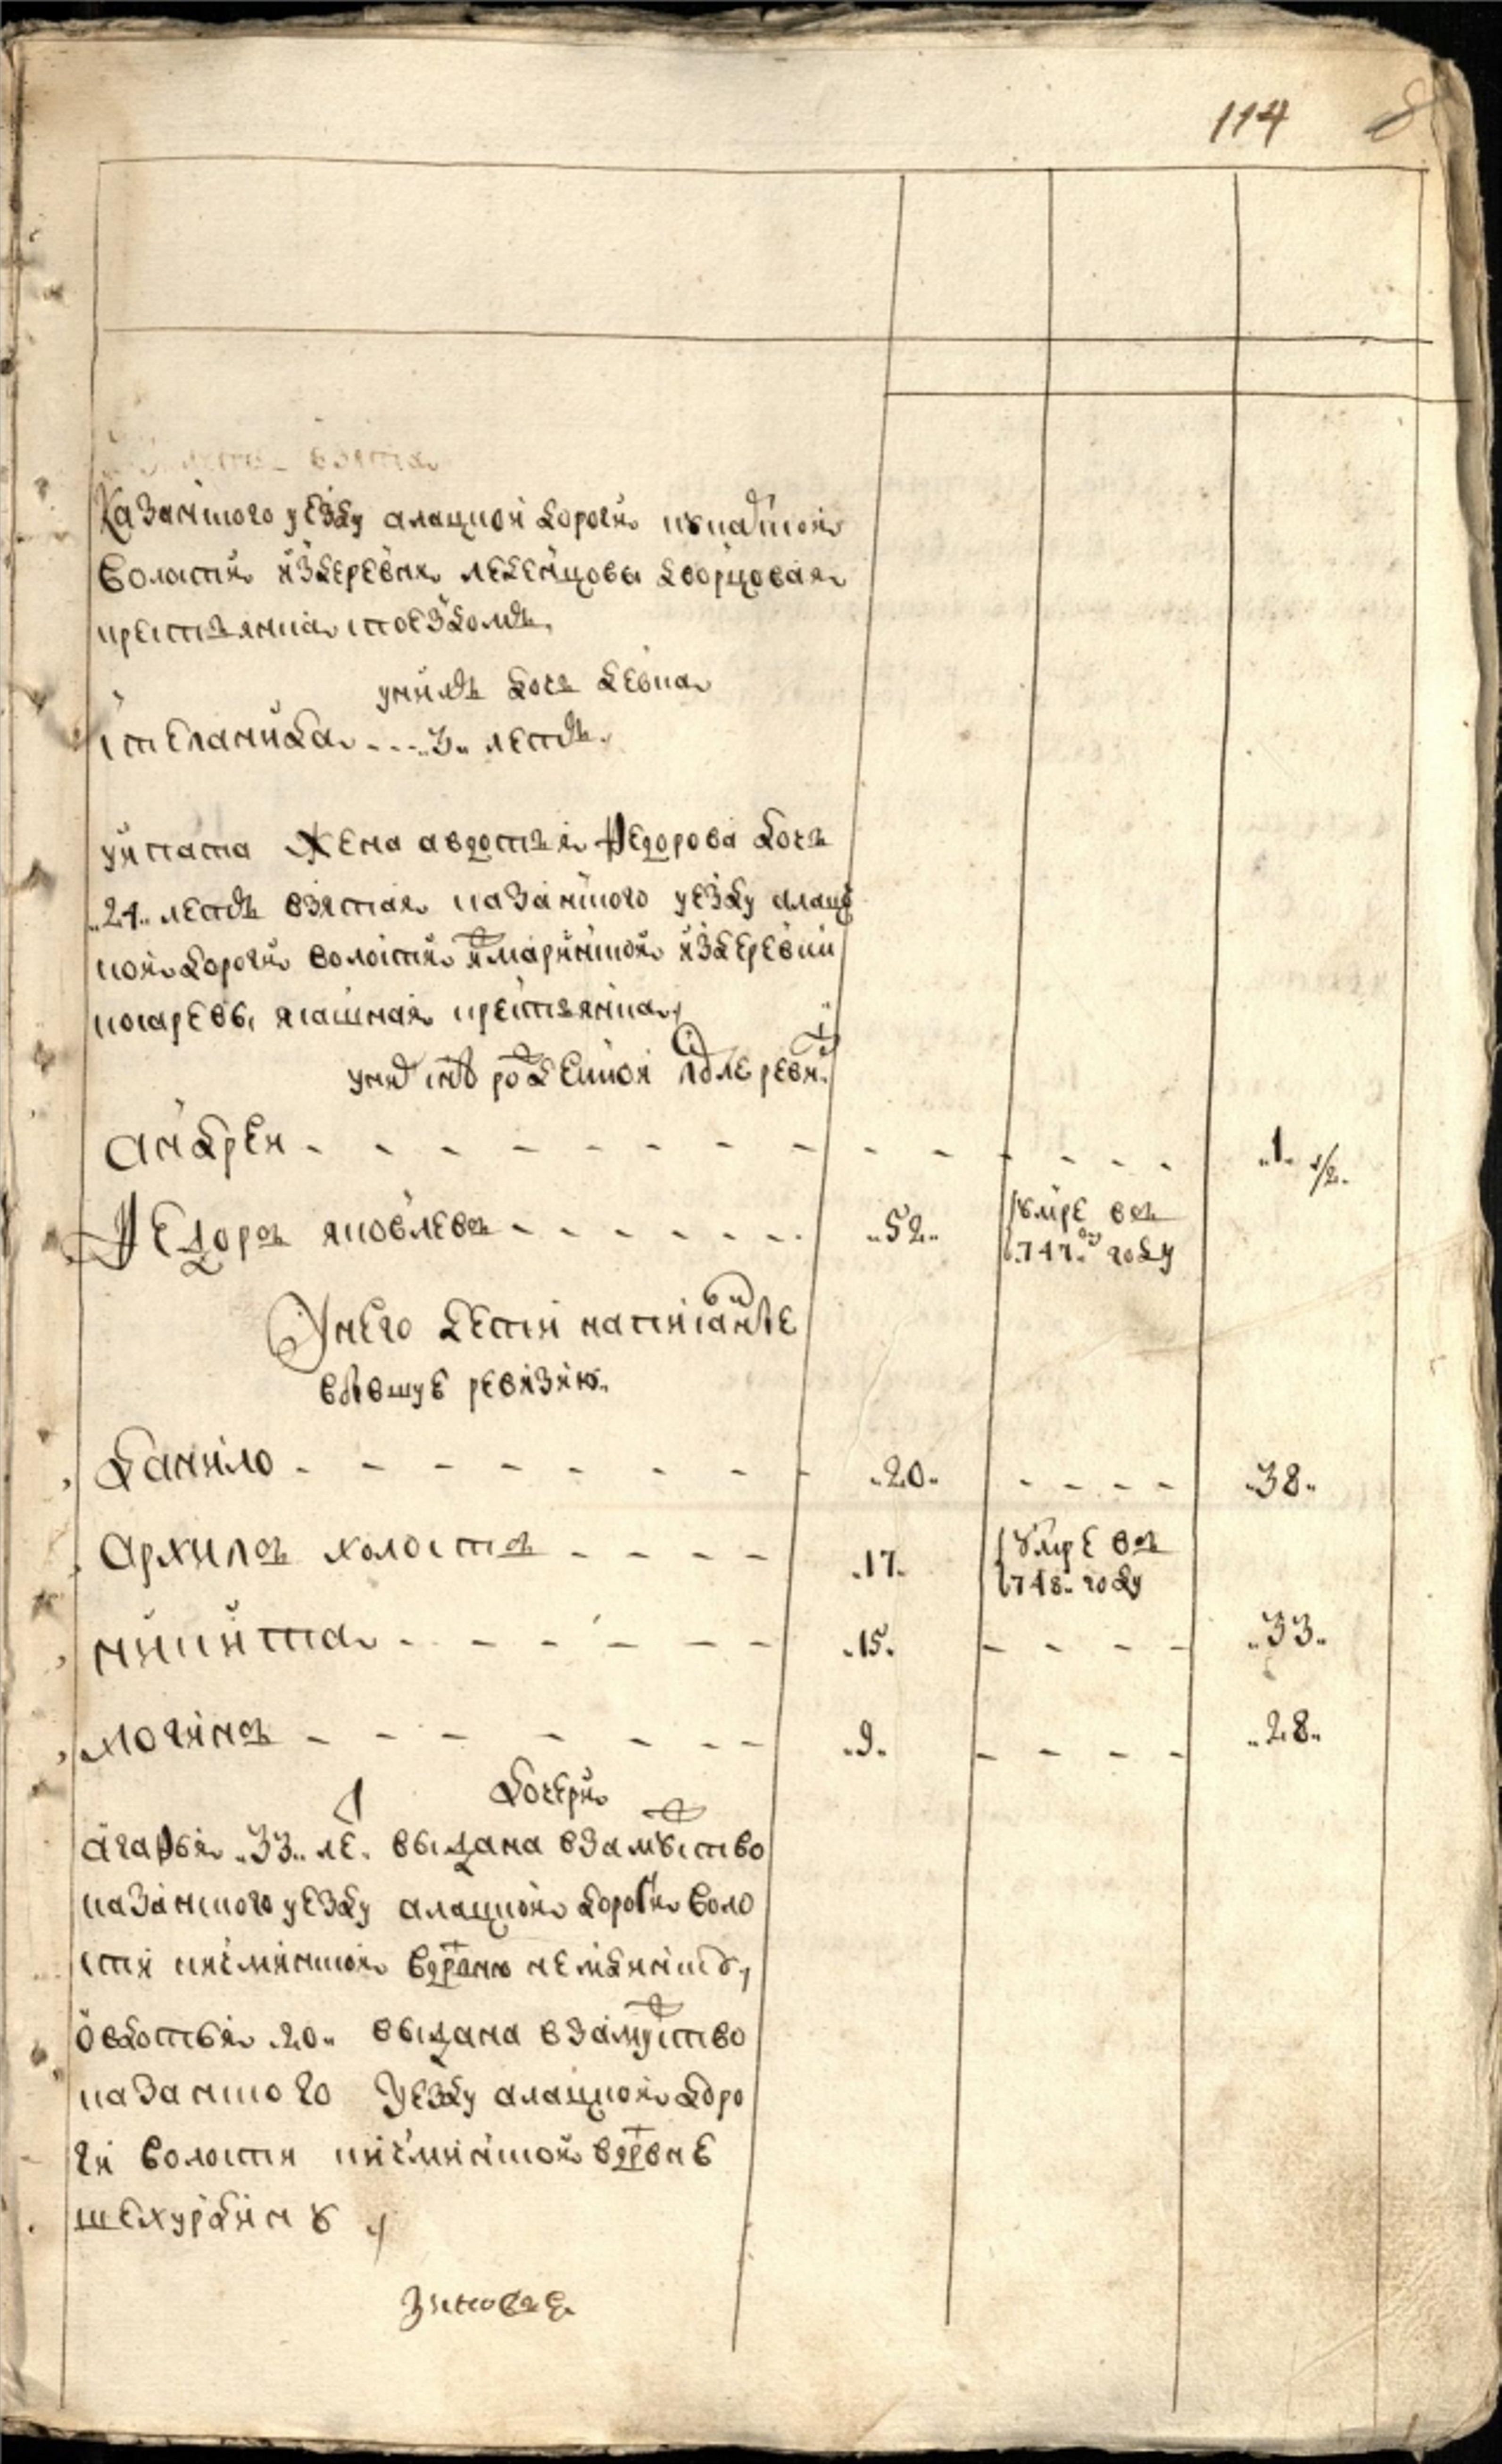 114
взята
Казанского уезду алацкои дороги
волости из деревни лебенцовы дворцовая
крестьянка стоездомъ
у них дочь девка
степанида - - - 3 летъ
у ипата жена авдотья федорова дочь
24 летъ взятая казанского уезду алац
кои дороги волости из деревни
ясашная крестьянка
у них рожденнои после ревизи
андреи - - - 1 1/2
Федоръ яковлевъ - - - 52 умре въ
747 году
У него дети написанные
в бывшую ревизию
данило - - - 20 - - - 38
архипъ холостъ - - - 17 умре въ
748 году
никита - - - 15 - - - 33
логинъ - - - 9 - - - 28
дочери
агафья 33 ле выдана в замужство
казанского уезду алацкои дороги воло
сти кичминскои в деревню
овдотья 20 выдана в замужство
казанского уезду алацкои доро
ги волости кичминскои в деревне
шехурдину